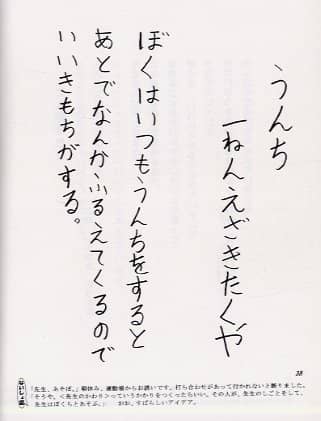 うんち
一ねんえざきたくや
ぼくはいつもうんちをすると
あとでなんかふるえてくるので
いいきもちがする。
38
ないしょ話
「先生、あそぼ。」昼休み、運動場からお誘いです。打ち合わせがあって行かれないと断りました。
「そうや、＜先生のかわり＞っていうかかりをつくったらいい。その人が、先生のしごとをして、
先生はぼくらとあそぶ。」　かお、すばらしいアイデア。